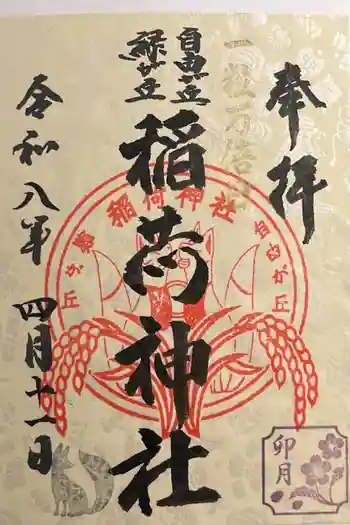 奉拝
一粒万倍日
自由が丘
緑が丘
稲荷神社
令和八年 四月十一日
稲荷神社
自由が丘
緑が丘
卯月